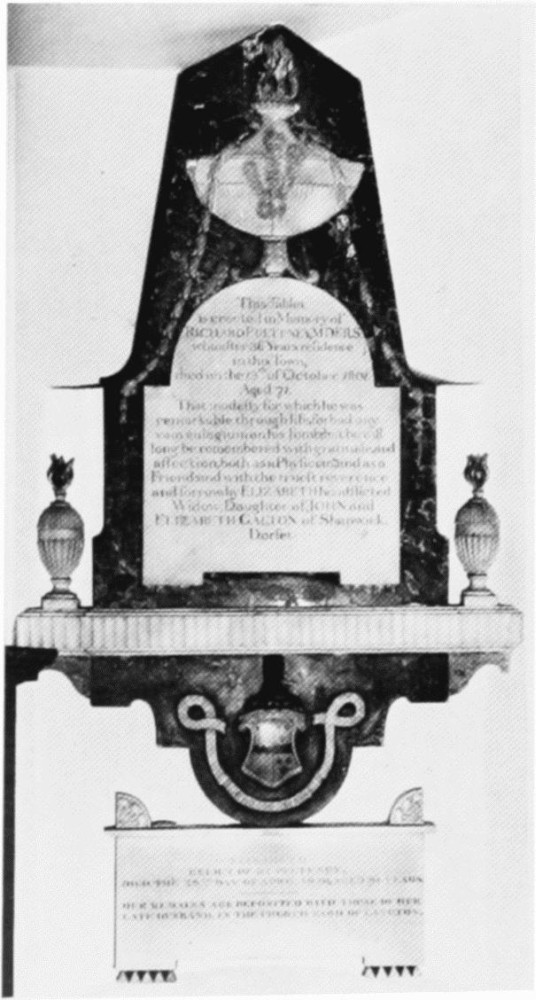 This Tablet
is erected in Memory of
RICHARD PULTENEY M:DERS
who after 36 Years residence
in this Town,
died on the 13th of October 1801
Aged 71.
That modesty for which he was
remarkable through life, forbad any
vain eulogium on his Tomb: but he will
long be remembered with gratitude and
affection, both as a Physician and as a
Friend and with the truest reverence
and sorrow by ELIZABETH his afflicted
Widow, Daughter of JOHN and
ELIZABETH GALTON of Shapwick,
Dorset.
RELICT OF DR PULTENEY,
DIED THE 28TH DAY OF APRIL AGED YEARS
HER REMAINS ARE DEPOSITED WITH THOSE OF HER
LATE HUSBAND, IN THE CHURCH YARD OF LANGTON.